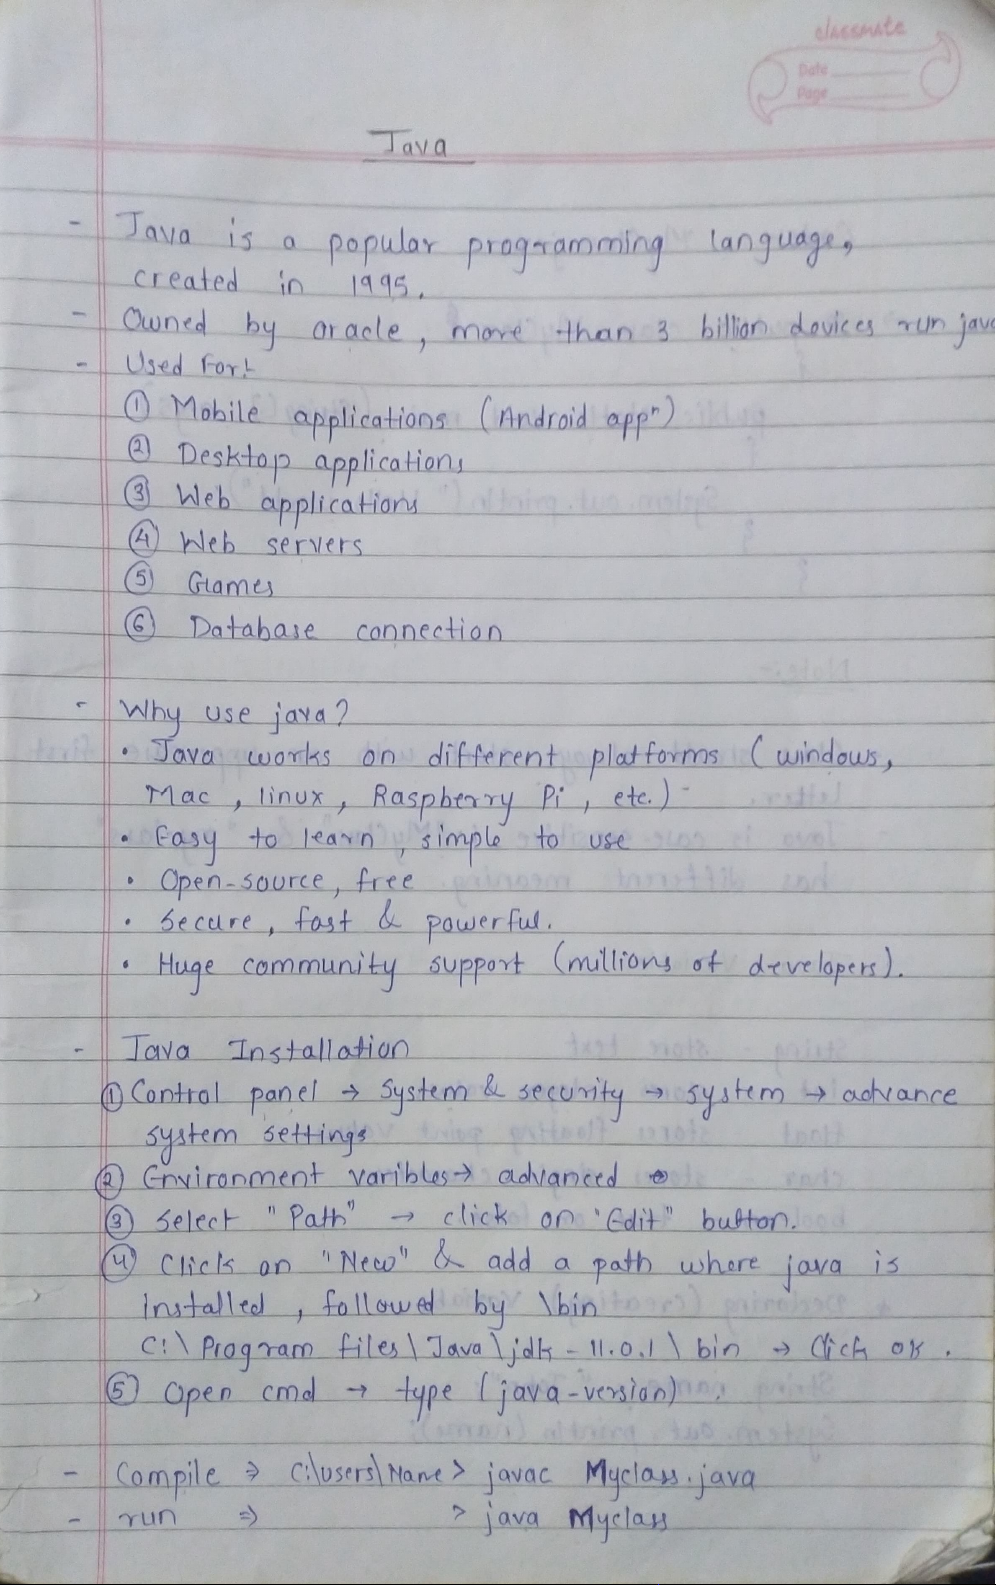 classmate
Date
Page
Java
- Java is a popular programming language,
created in 1995.
- Owned by oracle, more than 3 billion devices run java
- Used For:-
① Mobile applications (Android appⁿ)
② Desktop applications
③ Web applications
④ Web servers
⑤ Games
⑥ Database connection
- Why use java?
• Java works on different platforms (windows,
Mac, linux, Raspberry Pi, etc.)
• Easy to learn, simple to use
• Open-source, free
• Secure, fast & powerful.
• Huge community support (millions of developers).
- Java Installation
① Control panel → System & security → system → advance
system settings
② Environment varibles → advanced
③ Select "Path" → click on 'Edit" button.
④ Click on "New" & add a path where java is
installed, followed by \bin
C:\Program files\Java\jdk-11.0.1\bin → Click ok.
⑤ Open cmd → type (java-version).
- Compile ⇒ C:\users\Name> javac Myclass.java
- run ⇒ > java Myclass